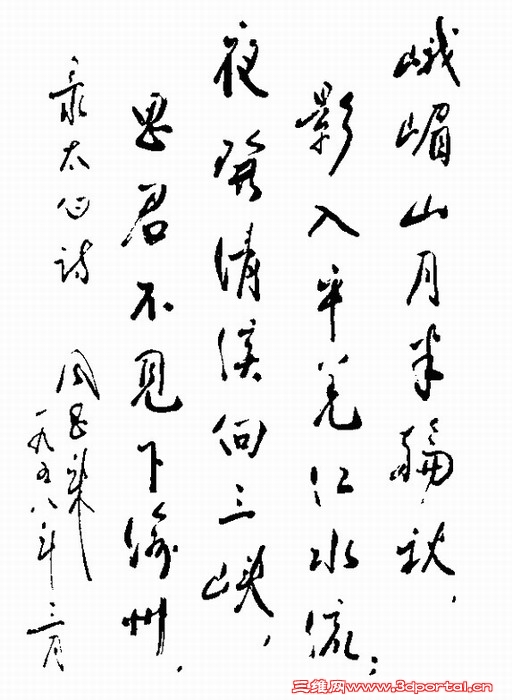 峨嵋山月半輪秋，
影入平羌江水流；
夜發清溪向三峽，
思君不見下渝州．
录太白诗 周恩来
一九五八年三月
三维网www.3dportal.cn